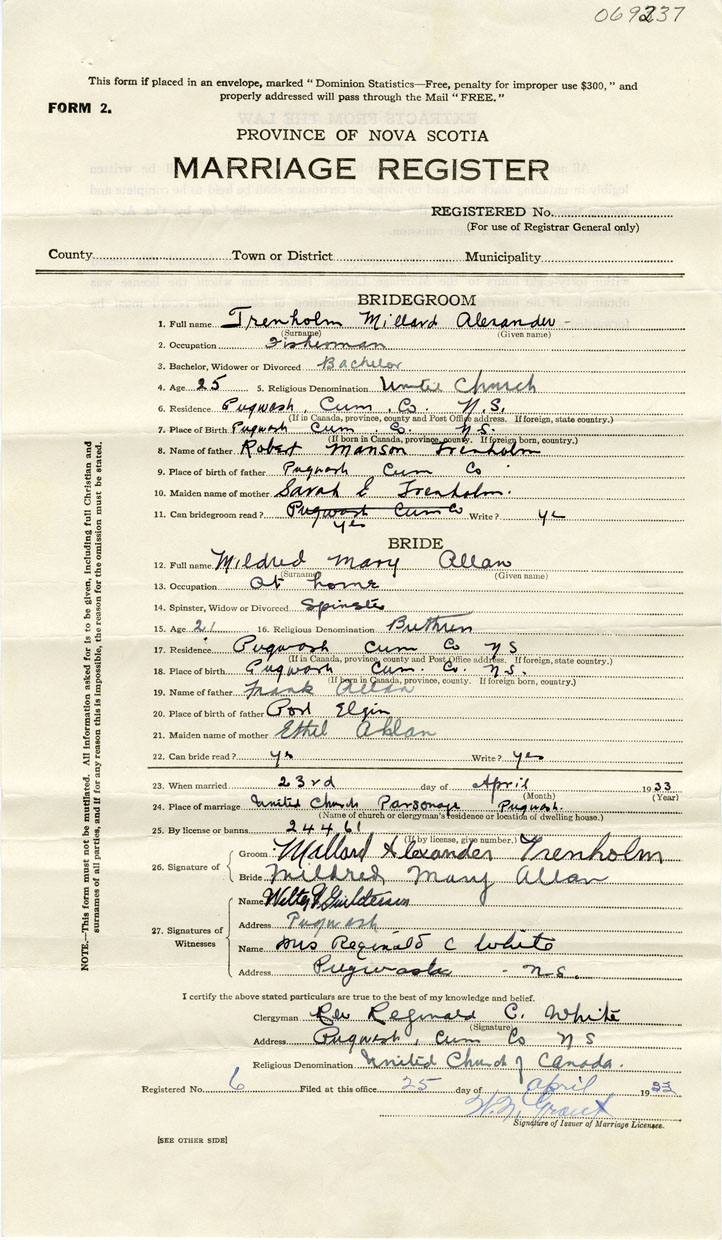 069237
This form if placed in an envelope, marked "Dominion Statistics—Free, penalty for improper use $300," and
properly addressed will pass through the Mail "FREE."
FORM 2.
PROVINCE OF NOVA SCOTIA
MARRIAGE REGISTER
REGISTERED No.
(For use of Registrar General only)
County Town or District Municipality
BRIDEGROOM
1. Full name Trenholm Millard Alexander -
(Surname) (Given name)
2. Occupation Fisherman
3. Bachelor, Widower or Divorced Bachelor
4. Age 25 5. Religious Denomination United Church
6. Residence Pugwash, Cum. Co. N.S.
(If in Canada, province, county and Post Office address. If foreign, state country.)
7. Place of Birth Pugwash Cum Co. N.S.
(If born in Canada, province, county. If foreign born, country.)
8. Name of father Robert Manson Trenholm
9. Place of birth of father Pugwash Cum Co
10. Maiden name of mother Sarah E Trenholm.
11. Can bridegroom read? Pugwash Cum Co Write? yes
yes
BRIDE
12. Full name Mildred Mary Allan
(Surname) (Given name)
13. Occupation At home
14. Spinster, Widow or Divorced Spinster
15. Age 21 16. Religious Denomination Brethren
17. Residence Pugwash Cum Co NS
(If in Canada, province, county and Post Office address. If foreign, state country.)
18. Place of birth Pugwash Cum. Co. N.S.
(If born in Canada, province, county. If foreign born, country.)
19. Name of father Frank Allan
20. Place of birth of father Port Elgin
21. Maiden name of mother Ethel Allan
22. Can bride read? yes Write? yes
23. When married 23rd day of April 1933
(Month) (Year)
24. Place of marriage United Church Parsonage Pugwash.
(Name of church or clergyman's residence or location of dwelling house.)
25. By license or banns 24461
(If by license, give number.)
26. Signature of Groom Millard Alexander Trenholm
Bride Mildred Mary Allan
27. Signatures of Witnesses
Name
Address Pugwash
Name Mrs Reginald C White
Address Pugwash - N.S.
I certify the above stated particulars are true to the best of my knowledge and belief.
Clergyman Rev Reginald C. White
(Signature)
Address Pugwash, Cum Co NS
Religious Denomination United Church of Canada.
Registered No. 6 Filed at this office 25 day of April 1933
W. N. Grant
Signature of Issuer of Marriage Licenses.
[SEE OTHER SIDE]
NOTE.—This form must not be mutilated. All information asked for is to be given, including full Christian and
surnames of all parties, and if for any reason this is impossible, the reason for the omission must be stated.